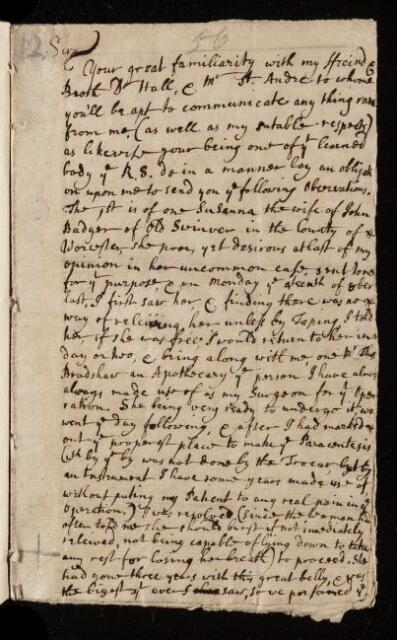 12. Sir
56
Your great familiarity with my Freind &
Broth Dr Hall, & Mr St. Andre to whome
you'll be apt to communicate any thing rare
from me, (as well as my sutable respects)
as likewise your being one of ye learned
body ye R. S. do in a manner lay an obliga
on upon me to send you ye following observations.
The 1st is of one Susanna the wife of John
Badger of Old Swinver in the County of
Worcester, she poor, yet desirous at last of my
opinion in her uncommon case, sent to me
for yt purpose, & on Monday ye
last, I first saw her, & finding there was no
way of releiving her unless by Taping, I told
her if she was free, I would return to her in a
day or two, & bring along with me, one Mr Tho
Bradshaw an Apothecary ye person I have almost
always made use of as my Surgeon for yt Ope
ration. She being very ready to undergo it, we
went ye day following, & after I had marked
out ye properest place to make ye Paracentesis
(wh by ye by was not done by the Trocar but by
an Instrument I have some years made use of
without puting my Patient to any real pain in ye
operation,) I was resolved (since the
often told me she should burst if not imediately
releived, not being capable of lying down to take
any rest for losing her breath) to proceed. She
had gone three years with this great belly, &
the bigest yt ever I saw, so we performed ye